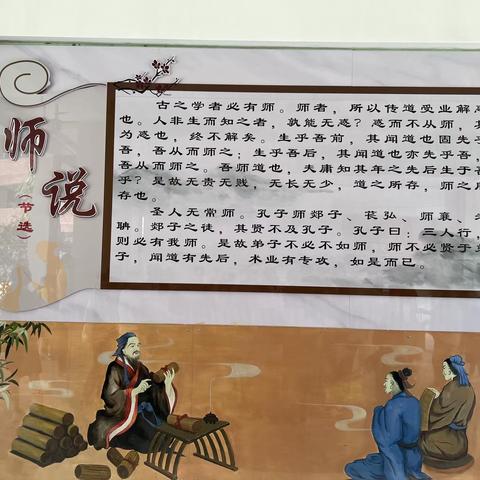 师说
(节选)
古之学者必有师。师者，所以传道受业解
也。人非生而知之者，孰能无惑？惑而不从师，其
为惑也，终不解矣。生乎吾前，其闻道也固先乎
吾，吾从而师之；生乎吾后，其闻道也亦先乎吾，
吾从而师之。吾师道也，夫庸知其年之先后生于吾
乎？是故无贵无贱，无长无少，道之所存，师之所
存也。
圣人无常师。孔子师郯子、苌弘、师襄、
聃。郯子之徒，其贤不及孔子。孔子曰：三人行，
则必有我师。是故弟子不必不如师，师不必贤于弟
子，闻道有先后，术业有专攻，如是而已。